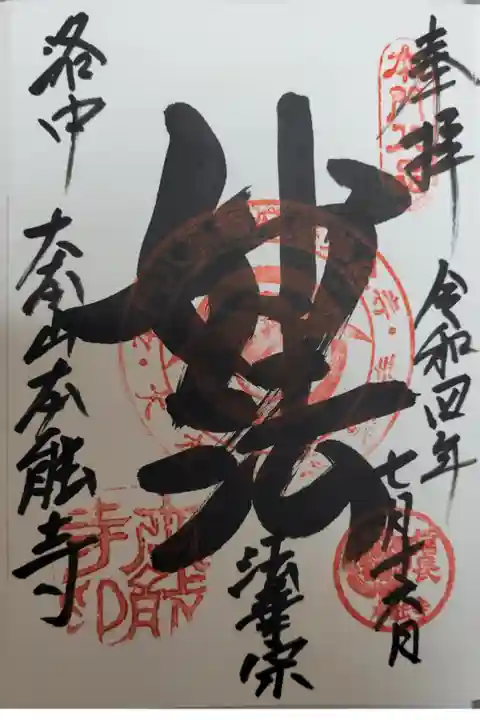 奉拝
令和四年
七月十六日
妙法
法華宗
洛中
大本山本能寺
本能寺印